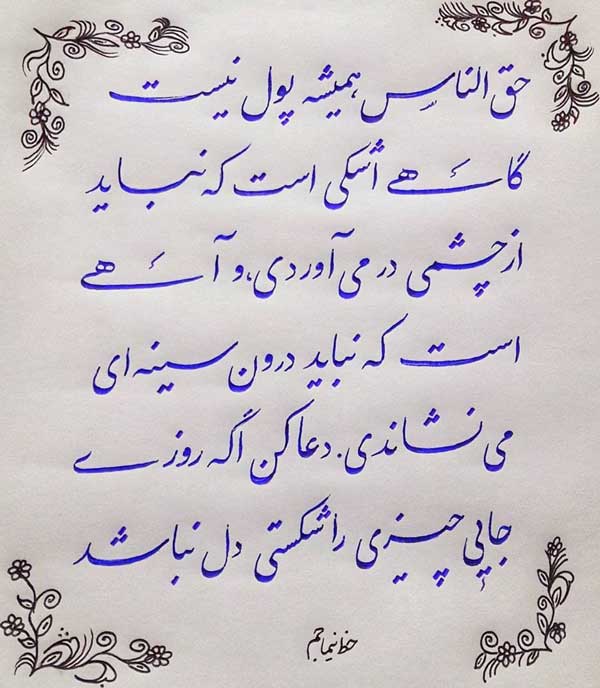 حق الناس همیشه پول نیست
گاهے اشکی است که نباید
از چشمی در می آوردی، و آهے
است که نباید درون سینه ای
می نشاندی. دعا کن اگه روزے
جایی چیزی را شکستی دل نباشد
خط نیما جم